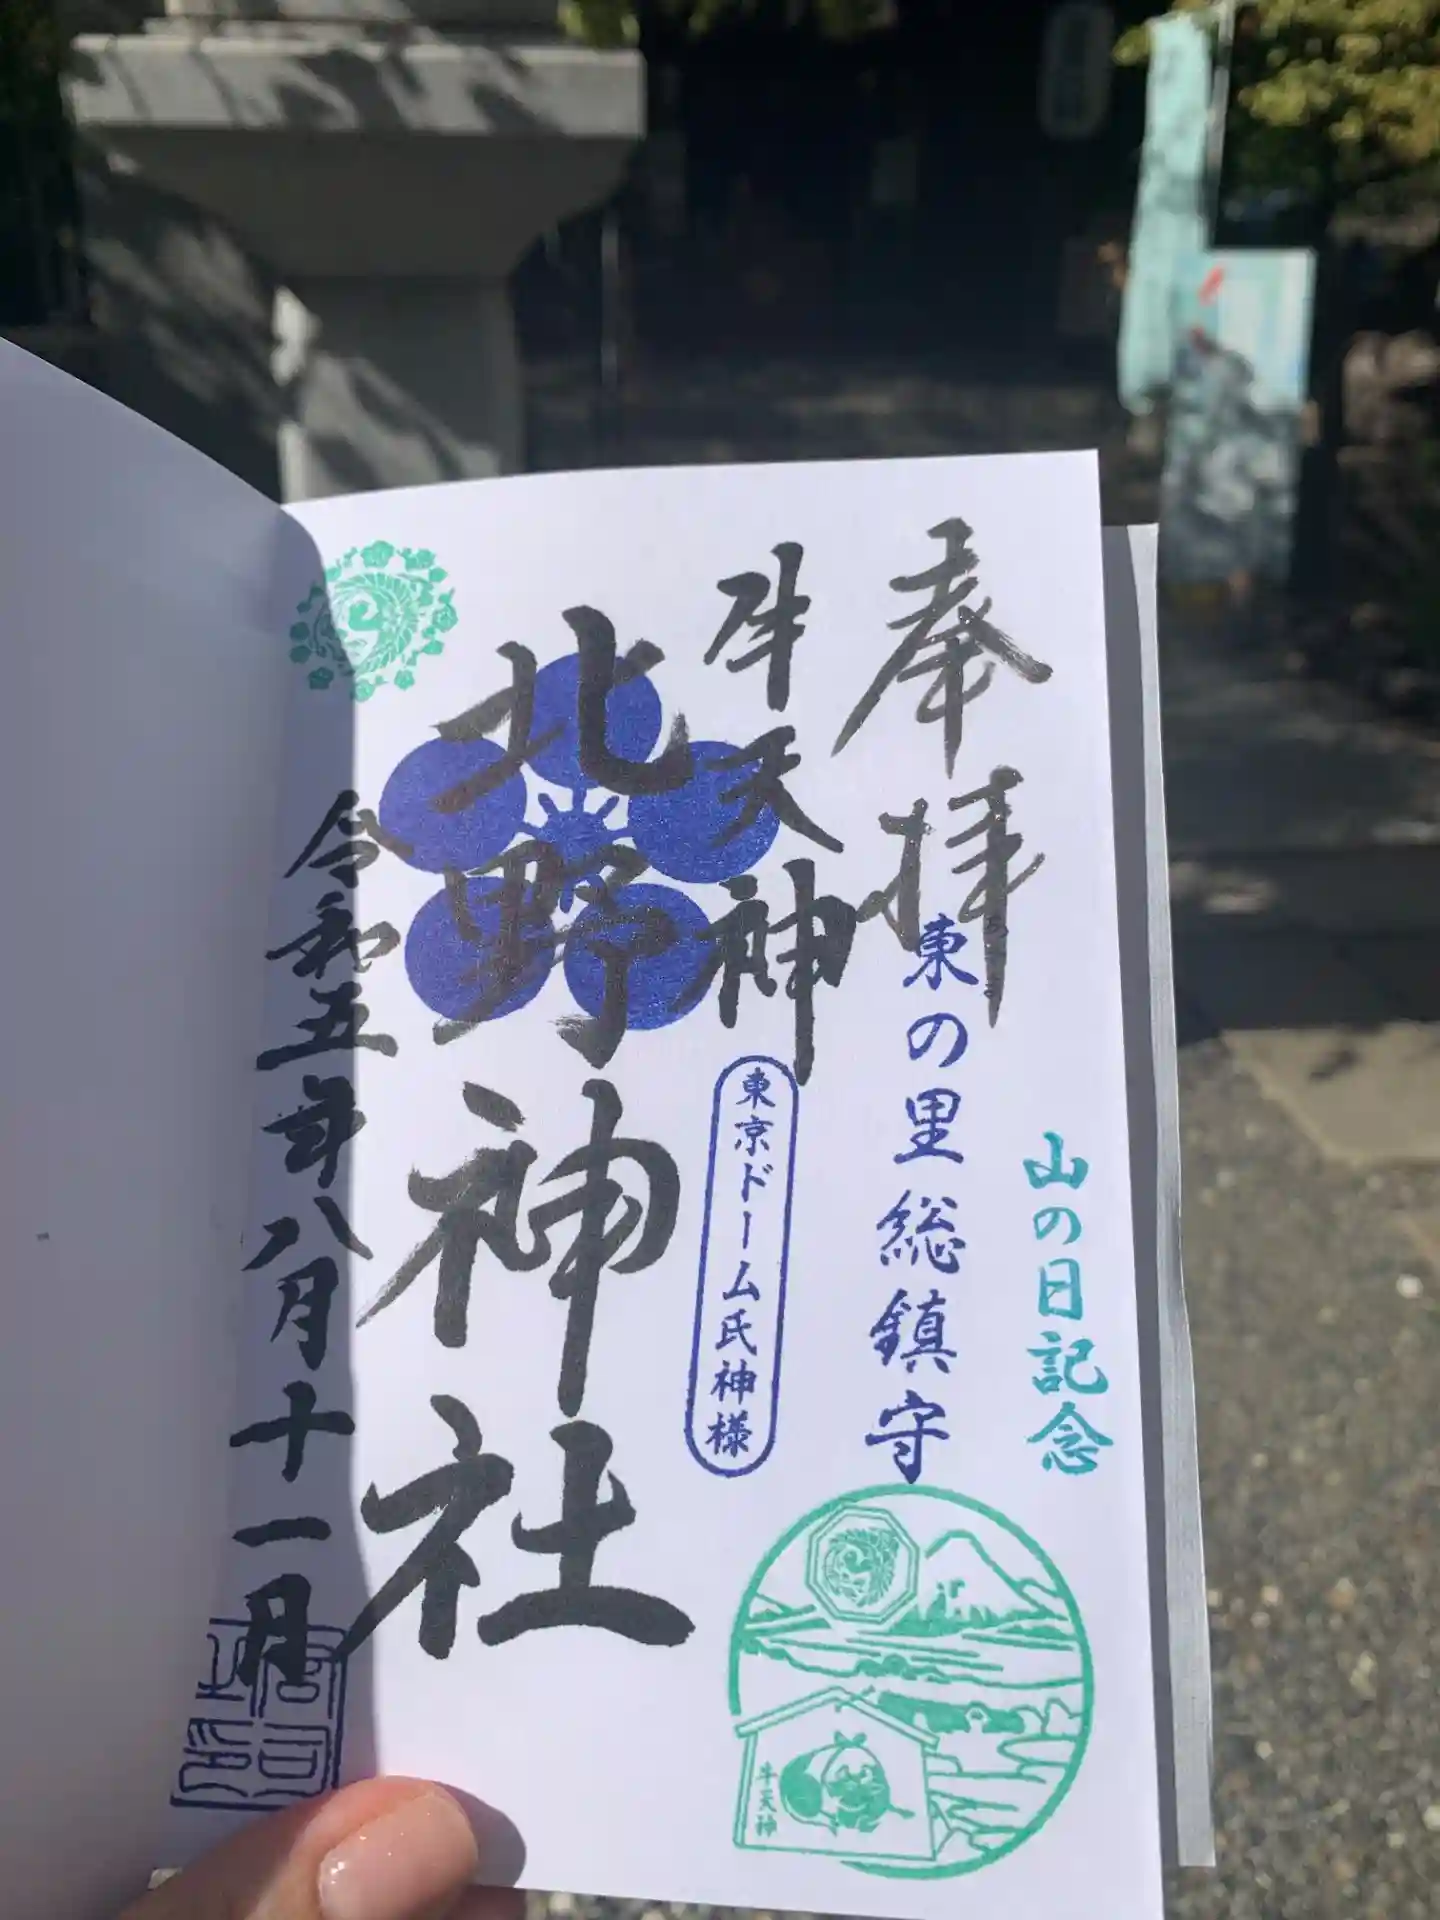 奉拝
山の日記念
東の里総鎮守
牛天神
東京ドーム氏神様
北野神社
令和五年八月十一日
牛天神